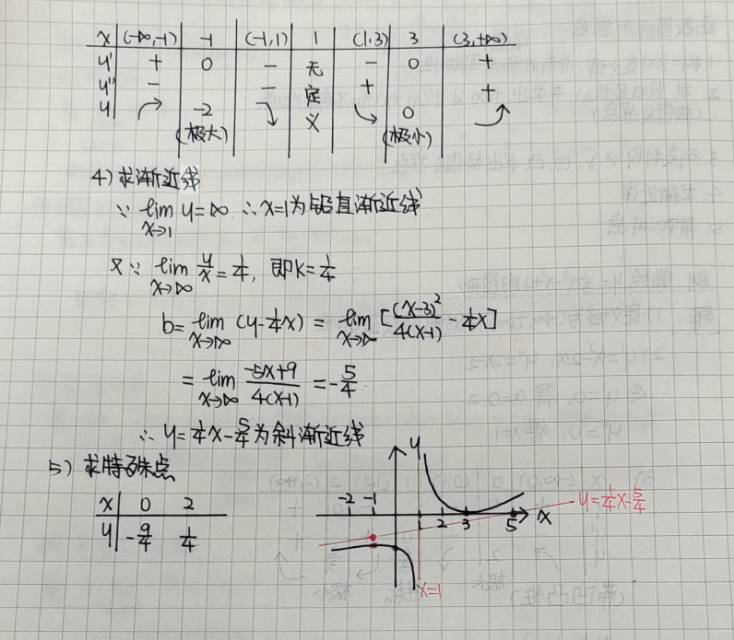 x (-∞,-1) -1 (-1,1) 1 (1,3) 3 (3,+∞)
y' + 0 - 无 - 0 +
y'' - - 定 + +
y -2 义 0
(极大) (极小)
4) 求渐近线
∵ lim x→1 y=∞ ∴ x=1为铅直渐近线
又∵ lim x→∞ y/x = 1/4, 即k=1/4
b = lim x→∞ (y-1/4x) = lim x→∞ [(x-3)²/4(x-1) - 1/4x]
= lim x→∞ -5x+9/4(x-1) = -5/4
∴ y=1/4x-5/4为斜渐近线
5) 求特殊点
x 0 2
y -9/4 1/4
y
-2 -1 1 2 3 5 x
y=1/4x-5/4
x=1